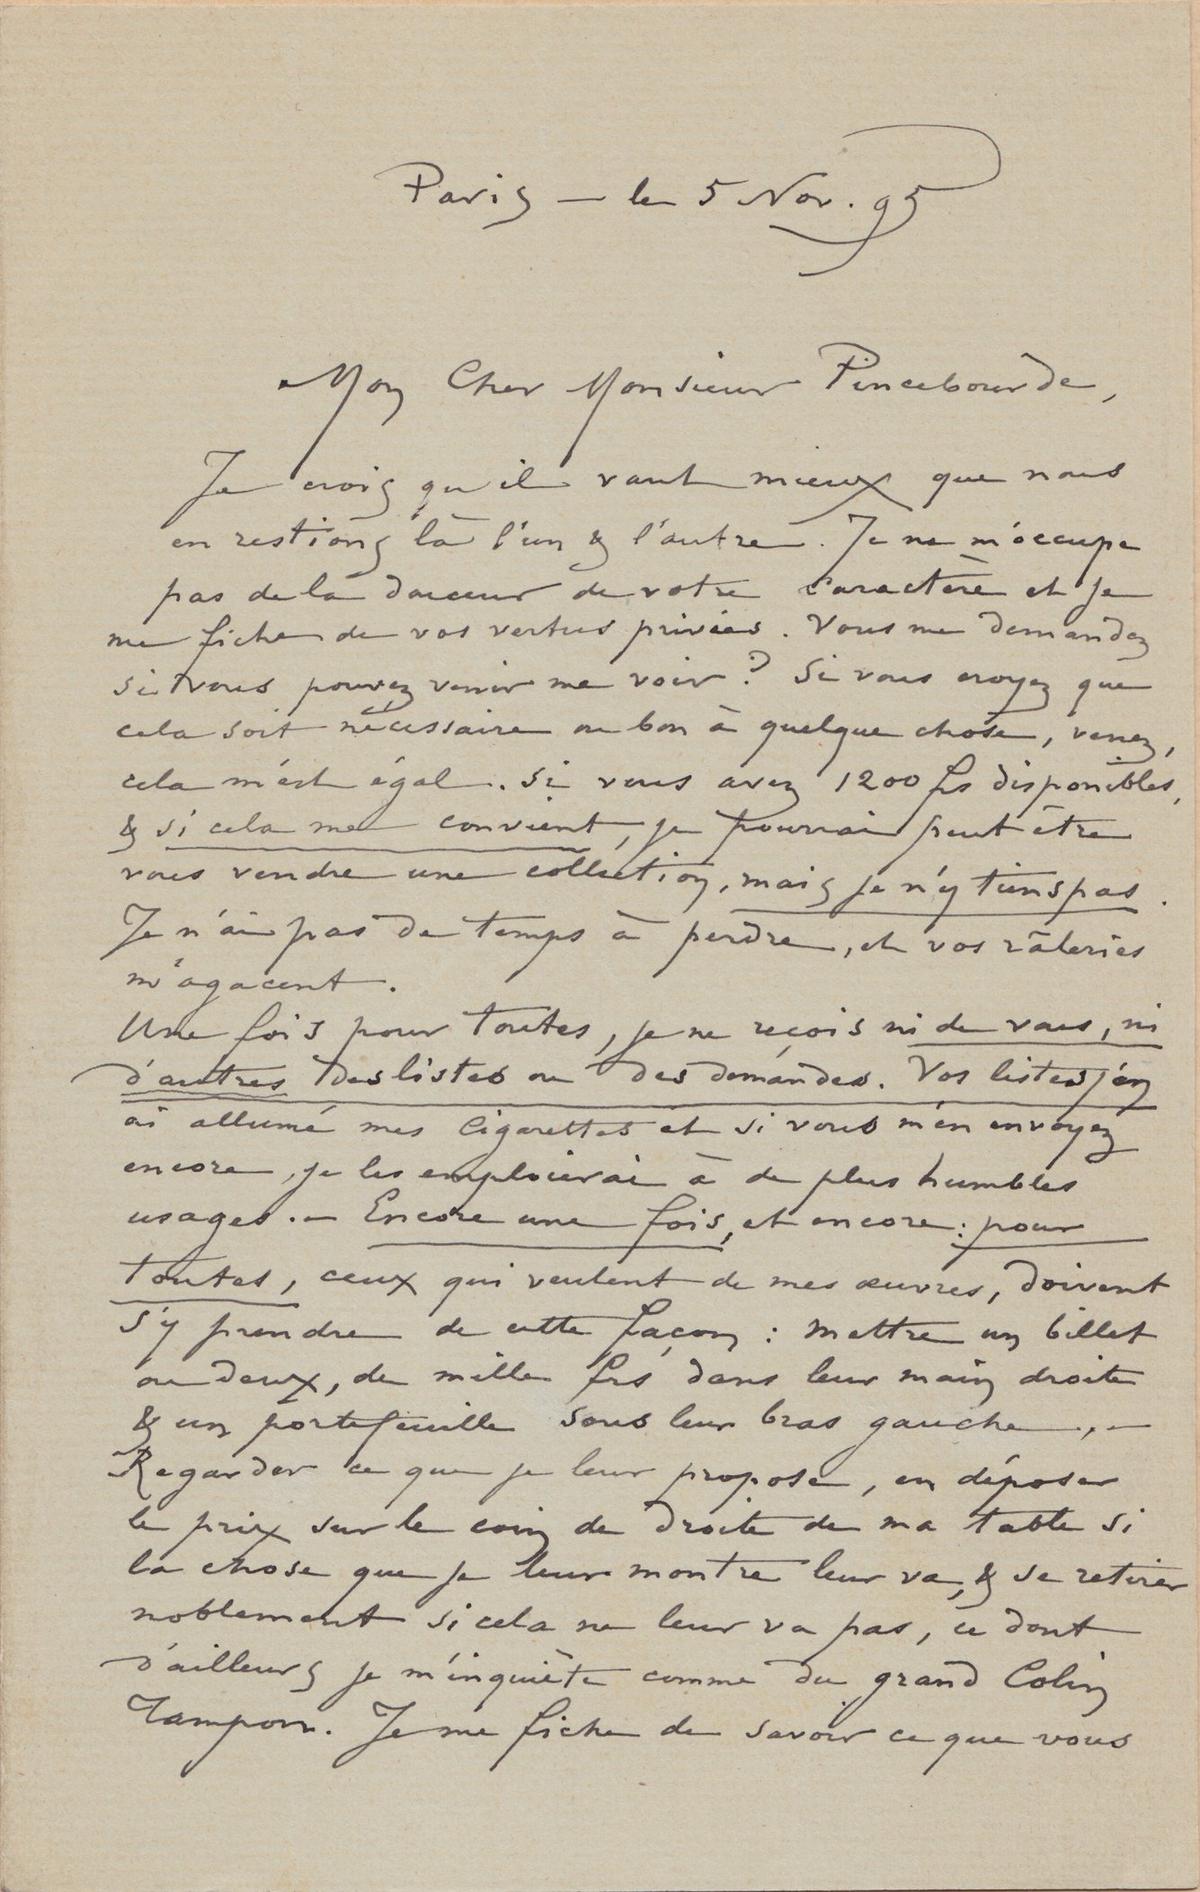 Paris — le 5 Nov. 95
Mon Cher Monsieur Pincebourde,
Je crois qu'il vaut mieux que nous
en restions là l'un & l'autre. Je ne m'occupe
pas de la douceur de votre caractère et je
me fiche de vos vertus privées. Vous me demandez
si vous pouvez venir me voir ? Si vous croyez que
cela soit nécessaire ou bon à quelque chose, venez,
cela m'est égal. Si vous avez 1200 frs disponibles,
& si cela me convient, je pourrai peut être
vous vendre une collection, mais je n'y tiens pas.
Je n'ai pas de temps à perdre, et vos râleries
m'agacent.
Une fois pour toutes, je ne reçois ni de vous, ni
d'autres des listes ou des demandes. Vos listes j'en
ai allumé mes cigarettes et si vous m'en envoyez
encore, je les emploierai à de plus humbles
usages. — Encore une fois, et encore : pour
toutes, ceux qui veulent de mes œuvres, doivent
s'y prendre de cette façon : mettre un billet
ou deux, de mille frs dans leur main droite
& un portefeuille sous leur bras gauche. —
Regarder ce que je leur propose, en déposer
le prix sur le coin de droite de ma table si
la chose que je leur montre leur va, & se retirer
noblement si cela ne leur va pas, ce dont
d'ailleurs je m'inquiète comme du grand Colin
Tampon. Je me fiche de savoir ce que vous